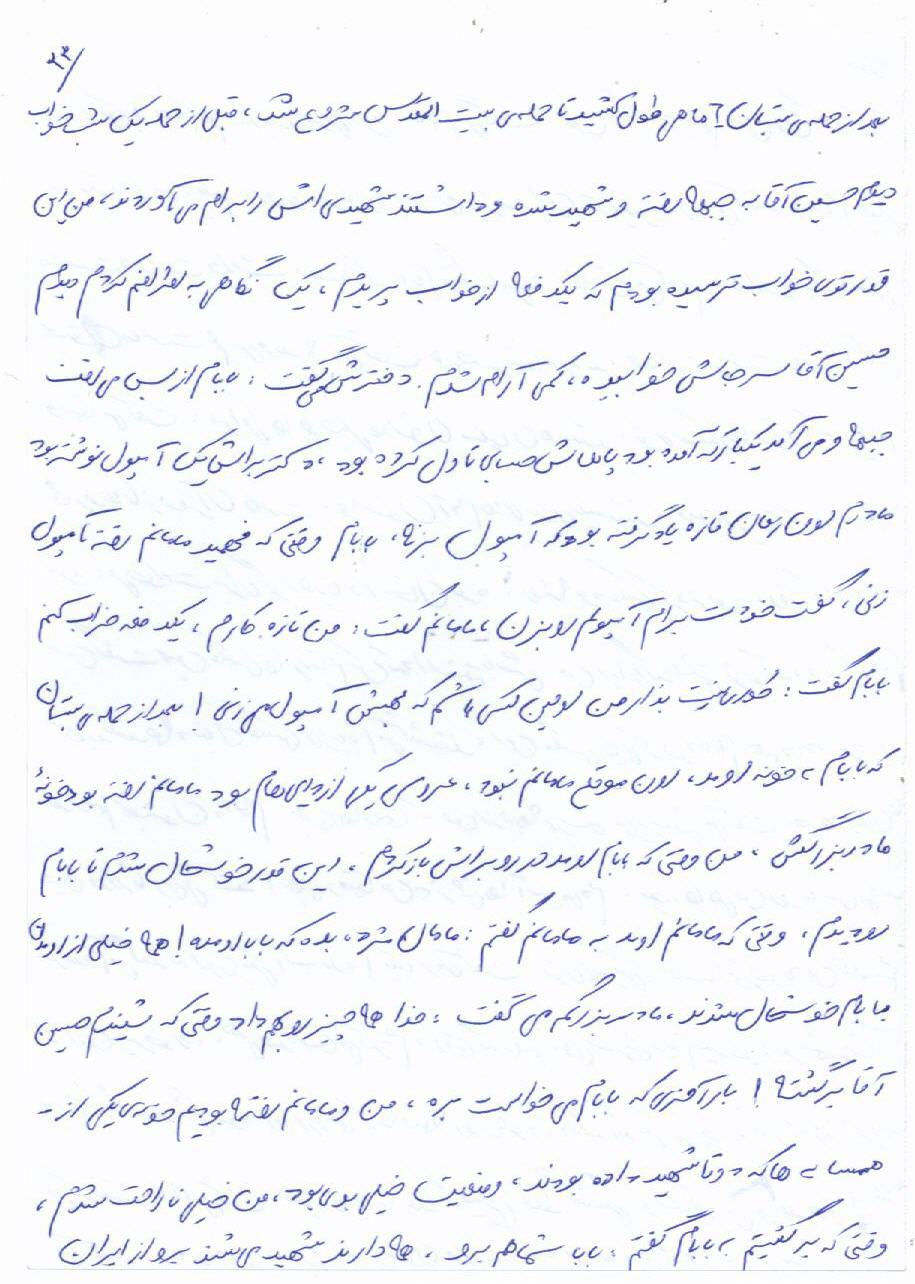 ۲۳/
بعد از حمله‌ی بستان ۶ ماهی طول کشید تا حمله‌ی بیت المقدس شروع شد، قبل از حمله یک شب خواب
دیدم حسین آقا به جبهه رفته و شهید شده و داشتند شهیدی اش را برام می آوردند، من این
قدر توی خواب ترسیده بودم که یکدفعه از خواب پریدم، یک نگاهی به اطرافم کردم دیدم
حسین آقا سر جایش خوابیده، کمی آرام شدم. دخترش می گفت: بابام از بس می رفت
جبهه و می آمد یکبار که آمده بود پاهایش حسابی تاول کرده بود، دکتر برایش یک آمپول نوشته بود
مادرم اون زمان تازه یاد گرفته بود که آمپول بزنه، بابام وقتی که فهمید مامانم رفته آمپول
زنی، گفت خودت برام آمپولم رو بزن، مامانم گفت: من تازه کارم، یکدفعه خراب می کنم
بابام گفت: طوری نیست بذار من اولین کسی باشم که بهش آمپول می زنی! بعد از حمله‌ی بستان
که بابام به خونه اومد، اون موقع مامانم نبود، عروسی یکی از دایی هام بود مامانم رفته بود خونهٔ
مادربزرگش، من وقتی که بابام اومد در رو براش باز کردم، این قدر خوشحال شدم تا بابام
رو دیدم، وقتی که مامانم اومد به مامانم گفتم: مامان مژده بده که بابا اومده! همه خیلی از اومدن
بابام خوشحال شدند، مادربزرگم می گفت: خدا همه چیز رو بهم داد وقتی که شنیدم حسین
آقا برگشته! بار آخری که بابام می خواست بره، من و مامانم رفته بودیم خونه‌ی یکی از -
همسایه ها که دو تا شهید داده بودند، وضعیت خیلی بدی بود، من خیلی ناراحت شدم،
وقتی که برگشتیم به بابام گفتم: بابا شما هم برو، همه دارند شهید می شند برو از ایران